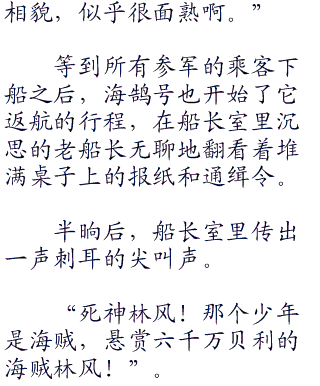 相貌，似乎很面熟啊。”
等到所有参军的乘客下
船之后，海鹄号也开始了它
返航的行程，在船长室里沉
思的老船长无聊地翻看着堆
满桌子上的报纸和通缉令。
半晌后，船长室里传出
一声刺耳的尖叫声。
“死神林风！那个少年
是海贼，悬赏六千万贝利的
海贼林风！”。